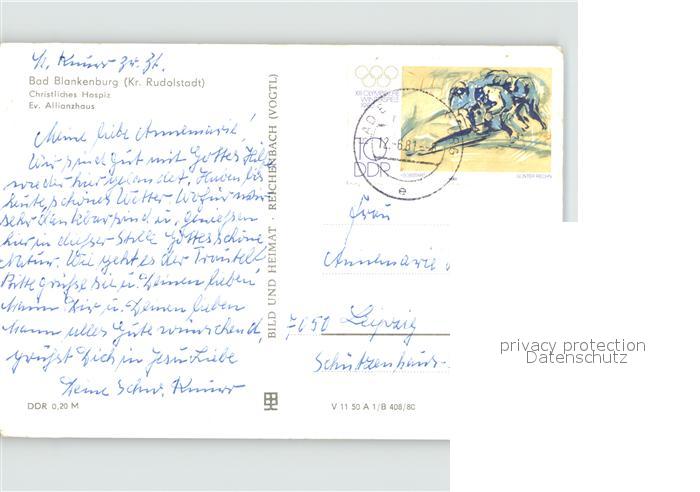 Bad Blankenburg (Kr. Rudolstadt)
Christliches Hospiz
Ev. Allianzhaus
Meine liebe Annemarie!
Wir sind gut mit Gottes Hilfe
wieder hier gelandet. Haben bis
heute schönes Wetter. Wofür wir
sehr dankbar sind u. genießen
hier in dieser Stille Gottes schöne
Natur. Wie geht es der Traudel?
Bitte grüße sie u. Deinen lieben
Mann. Dir u. Deinen lieben
Mann alles Gute wünschend,
grüßt Dich in Jesu Liebe
Deine Schw. Knurr
DDR 0,20 M
BILD UND HEIMAT · REICHENBACH (VOGTL)
XIII. OLYMPISCHE
WINTERSPIELE
10
DDR
GÜNTER RECHN
12.-6.81
e
Frau
Annemarie
7050 Leipzig
Schützenhaus-
V 11 50 A 1/B 408/80
privacy protection
Datenschutz